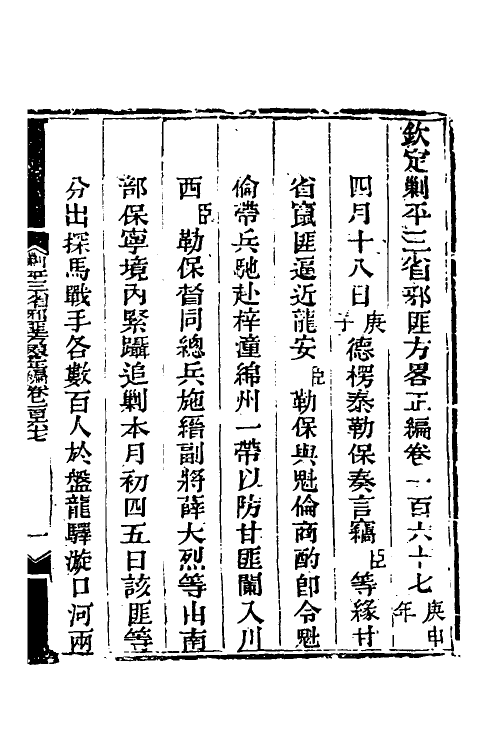 欽定剿平三省邪匪方畧正編卷一百六十七庚申年
四月十八日庚子德楞泰勒保奏言竊臣等緣甘
省竄匪逼近龍安臣勒保與魁倫商酌卽令魁
倫帶兵馳赴梓潼綿州一帶以防甘匪闌入川
西臣勒保督同總兵施縉副將薛大烈等由南
部保寧境內緊躡追剿本月初四五日該匪等
分出探馬戰手各數百人於盤龍驛漩口河兩
剿平三省邪匪方畧正編卷一百六十七
一